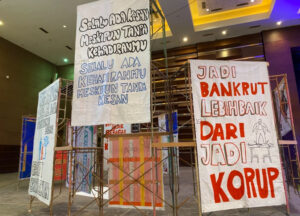 SELALU ADA KASIH
MESKIPUN TANPA
KEHADIRANMU
SELALU ADA
KEHADIRANMU
MESKIPUN TANPA
KESAN
JADI
BANKRUT
LEBIH BAIK
DARI
JADI
KORUP